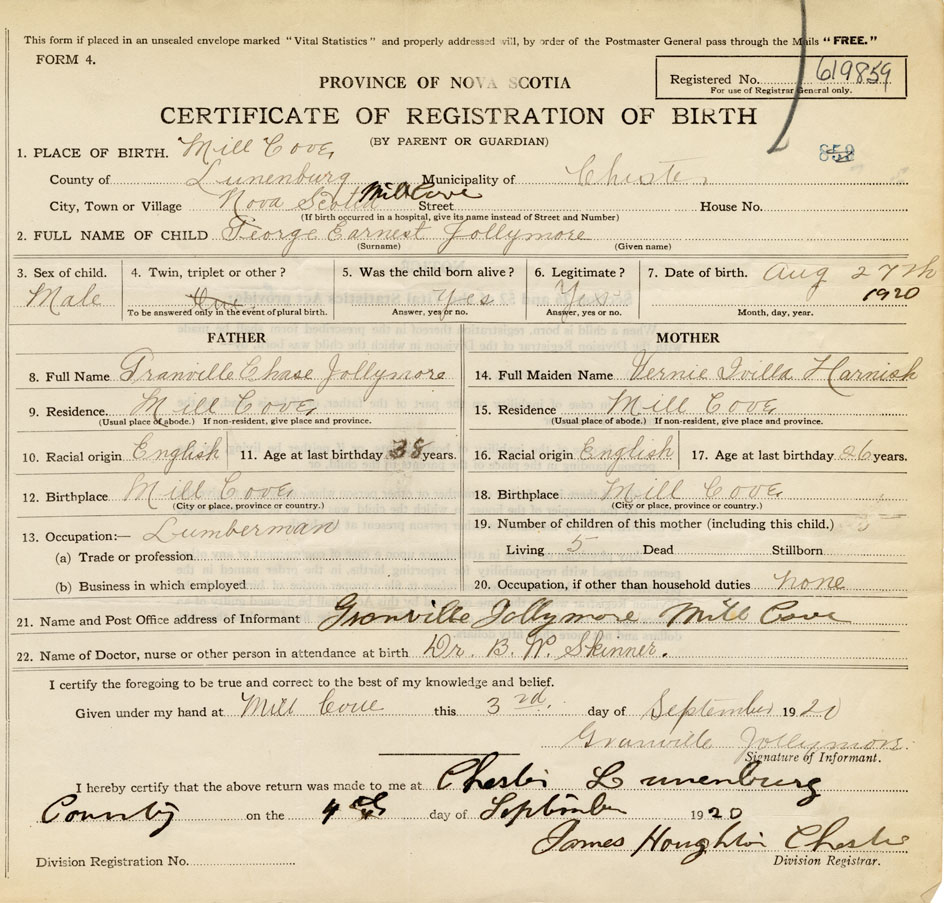 This form if placed in an unsealed envelope marked "Vital Statistics" and properly addressed will, by order of the Postmaster General pass through the Mails "FREE."
FORM 4.
PROVINCE OF NOVA SCOTIA
Registered No. 619859
For use of Registrar General only.
CERTIFICATE OF REGISTRATION OF BIRTH
(BY PARENT OR GUARDIAN)
1. PLACE OF BIRTH. Mill Cove
County of Lunenburg Municipality of Chester
City, Town or Village Nova Scotia Mill Cove Street House No.
(If birth occurred in a hospital, give its name instead of Street and Number)
2. FULL NAME OF CHILD George Earnest Jollymore
(Surname) (Given name)
3. Sex of child. 4. Twin, triplet or other? 5. Was the child born alive? 6. Legitimate? 7. Date of birth. Aug 27th
Male Yes Yes 1920
To be answered only in the event of plural birth. Answer, yes or no. Answer, yes or no. Month, day, year.
FATHER MOTHER
8. Full Name Granville Chase Jollymore 14. Full Maiden Name Vernie Ivilla Harnish
9. Residence. Mill Cove 15. Residence Mill Cove
(Usual place of abode.) If non-resident, give place and province. (Usual place of abode.) If non-resident, give place and province.
10. Racial origin English 11. Age at last birthday 38 years. 16. Racial origin English 17. Age at last birthday 26 years.
12. Birthplace Mill Cove 18. Birthplace Mill Cove
(City or place, province or country.) (City or place, province or country.)
13. Occupation:— Lumberman 19. Number of children of this mother (including this child.) 5
(a) Trade or profession Living 5 Dead Stillborn
(b) Business in which employed 20. Occupation, if other than household duties none
21. Name and Post Office address of Informant Granville Jollymore Mill Cove
22. Name of Doctor, nurse or other person in attendance at birth Dr. B. W. Skinner.
I certify the foregoing to be true and correct to the best of my knowledge and belief.
Given under my hand at Mill Cove this 3rd. day of September 1920
Granville Jollymore.
Signature of Informant.
I hereby certify that the above return was made to me at Chester Lunenburg
County on the 4th day of September 1920
James Houghton Chester
Division Registration No. Division Registrar.